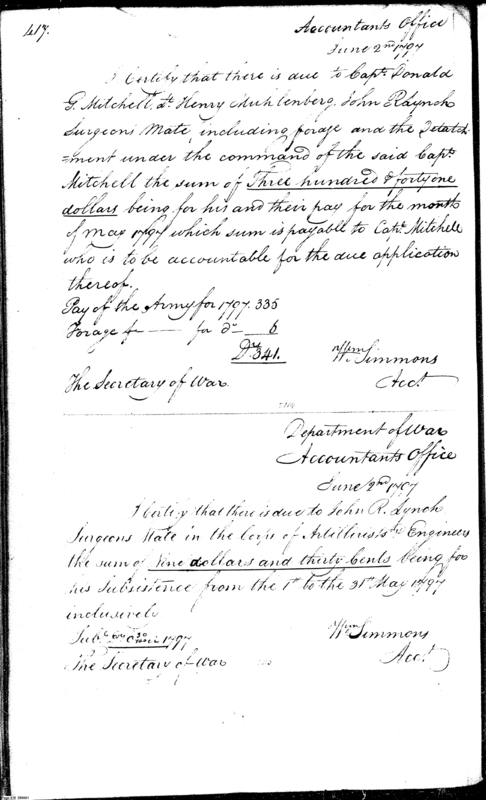 417.
Accountants Office
June 2nd 1797
I Certify that there is due to Capt. Donald
G. Mitchell, Lt. Henry Muhlenberg, John R Lynch
Surgeons Mate, including forage and the Detatch-
=ment under the command of the said Capt.
Mitchell the sum of Three hundred & forty one
dollars being for his and their pay for the month
of May 1797 which sum is payable to Capt. Mitchell
who is to be accountable for the due application
thereof.
Pay of the Army for 1797. 335
Forage for do 6
Drs 341.
Wm Simmons
The Secretary of War
Acct
Department of War
Accountants Office
June 2nd 1797
I Certify that there is due to John R. Lynch
Surgeons Mate in the Corps of Artillerists & Engineers
the sum of Nine dollars and thirty Cents being for
his Subsistence from the 1st to the 31st May 1797
inclusively
1797
Wm Simmons
The Secretary of War
Acct